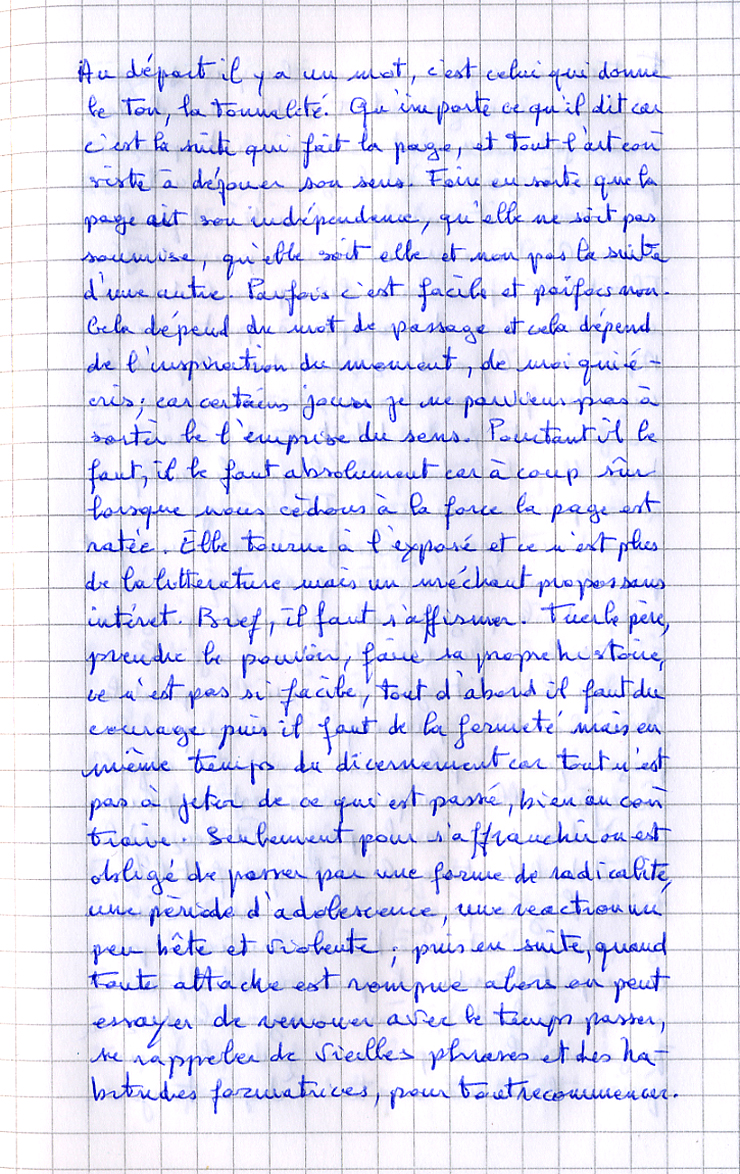 Au départ il y a un mot, c'est celui qui donne
le ton, la tonnalité. Qu'importe ce qu'il dit car
c'est la suite qui fait la page, et tout l'art con
siste à déjouer son sens. Faire en sorte que la
page ait son indépendence, qu'elle ne soit pas
soumise, qu'elle soit elle et non pas la suite
d'une autre. Parfois c'est facile et parfois non.
Cela dépend du mot de passage et cela dépend
de l'inspiration du moment, de moi qui é-
cris; car certains jours je ne parviens pas à
sortir de l'emprise du sens. Pourtant il le
faut, il le faut absolument car à coup sûr
lorsque nous cèdons à la force la page est
ratée. Elle tourne à l'exposé et ce n'est plus
de la litterature mais un méchant propos sans
intéret. Bref, il faut s'affirmer. Tuer le père,
prendre le pouvoir, faire sa propre histoire,
ce n'est pas si facile, tout d'abord il faut du
courage puis il faut de la fermeté mais en
même temps du dicernement car tout n'est
pas à jeter de ce qui est passé, bien au con
traire. Seulement pour s'affranchir on est
obligé de passer par une forme de radicalité,
une période d'adolescence, une reaction un
peu bête et violente; puis en suite, quand
toute attache est rompue alors on peut
essayer de renouer avec le temps passer,
se rappeler de vieilles phrases et des ha-
bitudes formatrices, pour tout recommencer.